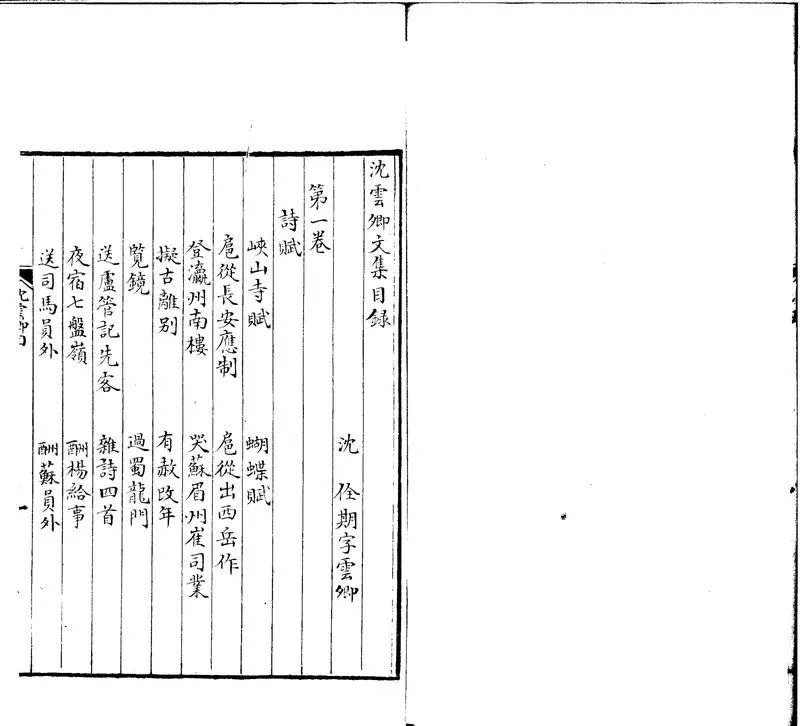 沈雲卿文集目録
沈 佺期字雲卿
第一卷
詩賦
峽山寺賦 蝴蝶賦
扈從長安應制 扈從出西岳作
登瀛州南樓 哭蘇眉州崔司業
擬古離别 有赦改年
覽鏡 過蜀龍門
送盧管記先客 雜詩四首
夜宿七盤嶺 酬楊給事
送司馬員外 酬蘇員外